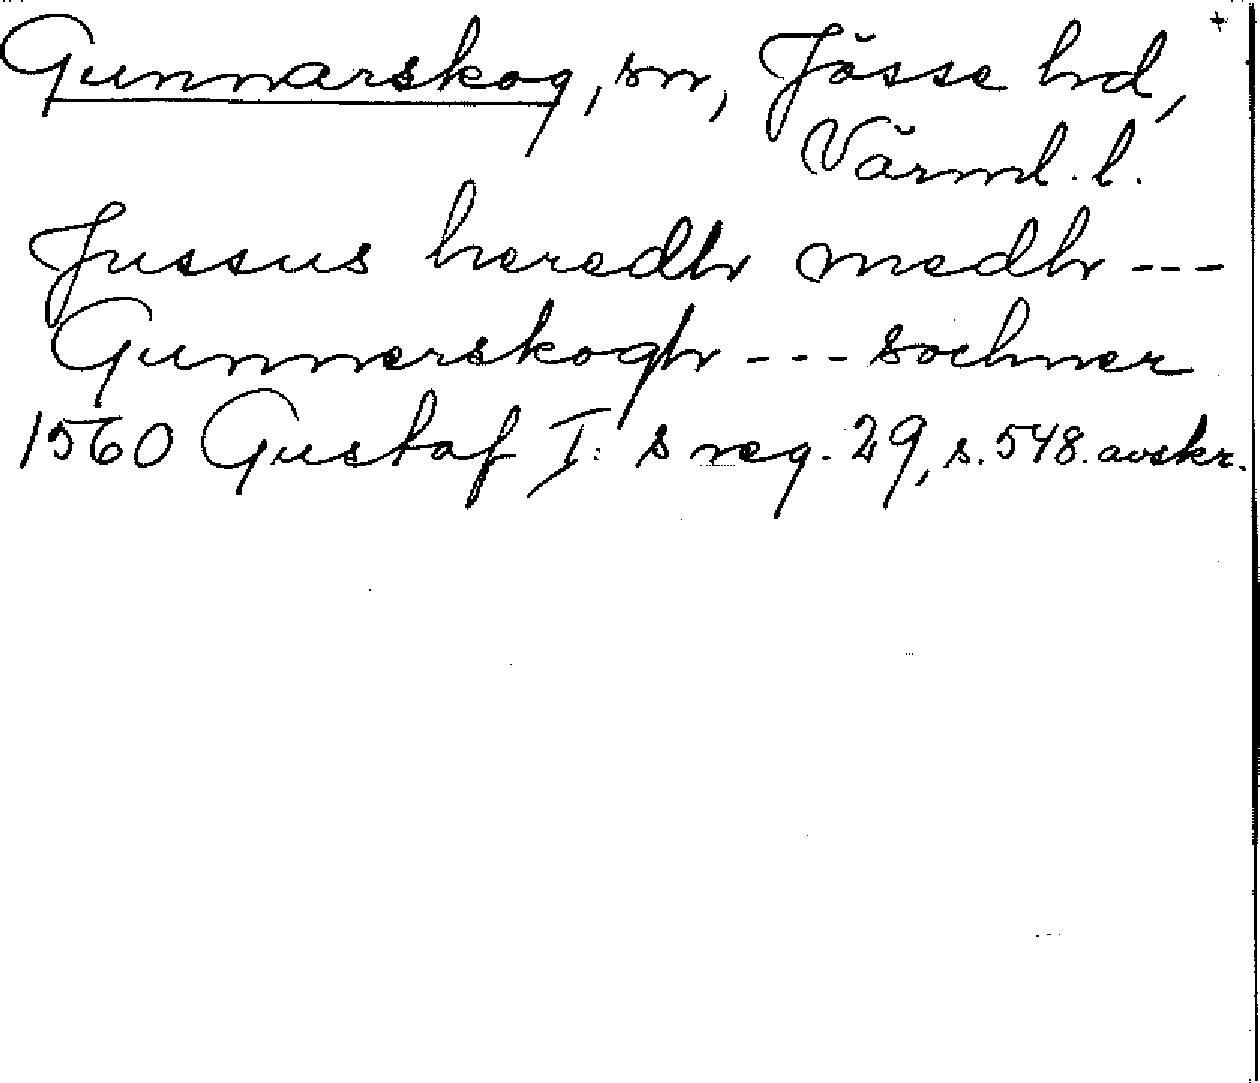 +
Gunnarskog, sn, Jösse hd,
Värml. l.
Jussus heredh medh ---
Gunnerskogh --- sochner
1560 Gustaf I:s reg. 29, s. 548. avskr.